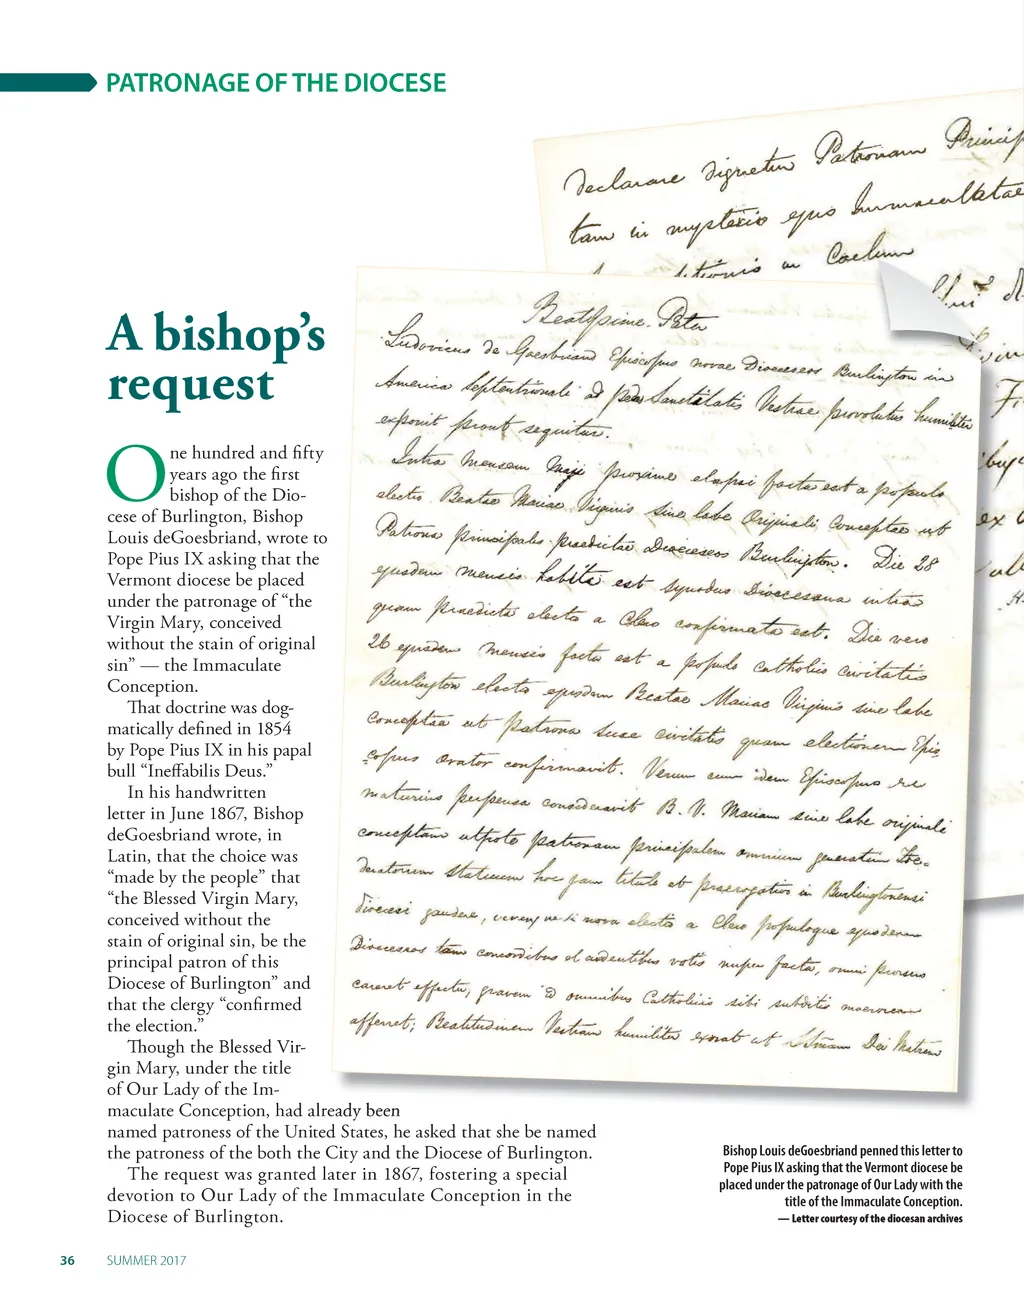 PATRONAGE OF THE DIOCESE
declarare dignetur Patronam Princip
tam in mysterio ejus Immaculatae
in Coelum
A bishop’s
request
One hundred and fifty
years ago the first
bishop of the Dio-
cese of Burlington, Bishop
Louis deGoesbriand, wrote to
Pope Pius IX asking that the
Vermont diocese be placed
under the patronage of “the
Virgin Mary, conceived
without the stain of original
sin” — the Immaculate
Conception.
That doctrine was dog-
matically defined in 1854
by Pope Pius IX in his papal
bull “Ineffabilis Deus.”
In his handwritten
letter in June 1867, Bishop
deGoesbriand wrote, in
Latin, that the choice was
“made by the people” that
“the Blessed Virgin Mary,
conceived without the
stain of original sin, be the
principal patron of this
Diocese of Burlington” and
that the clergy “confirmed
the election.”
Though the Blessed Vir-
gin Mary, under the title
of Our Lady of the Im-
maculate Conception, had already been
named patroness of the United States, he asked that she be named
the patroness of the both the City and the Diocese of Burlington.
The request was granted later in 1867, fostering a special
devotion to Our Lady of the Immaculate Conception in the
Diocese of Burlington.
Beatissime Pater
Ludovicus de Goesbriand Episcopus novae Dioeceseos Burlington in
America Septentrionali ad pedes Sanctitatis Vestrae provolutus humiliter
exponit prout sequitur.
Intra mensem Maji proxime elapsi facta est a populo
electio Beatae Mariae Virginis sine labe Originali Conceptae ut
Patrona principalis praedictae Dioeceseos Burlington. Die 28
ejusdem mensis habita est synodus Dioecesana intra
quam praedicta electio a Clero confirmata est. Die vero
26 ejusdem mensis facta est a populo catholico civitatis
Burlington electio ejusdem Beatae Mariae Virginis sine labe
Conceptae ut patrona suae civitatis quam electionem Epis
copus orator confirmavit. Verum cum idem Episcopus re
maturius perpensa consideravit B. V. Mariam sine labe originali
conceptam utpote patronam principalem omnium generatim Foe-
deratorum Statuum hoc jam titulo et praerogativa in Burlingtonensi
dioecesi gaudere, nova electio a Clero populoque ejusdem
Dioeceseos tam concordibus et ardentibus votis nuper facta, omni prorsus
careret effectu, gravem id omnibus Catholicis sibi subditis moerorem
afferret; Beatitudinem Vestram humiliter exorat ut Dei Matrem
Bishop Louis deGoesbriand penned this letter to
Pope Pius IX asking that the Vermont diocese be
placed under the patronage of Our Lady with the
title of the Immaculate Conception.
— Letter courtesy of the diocesan archives
36 SUMMER 2017